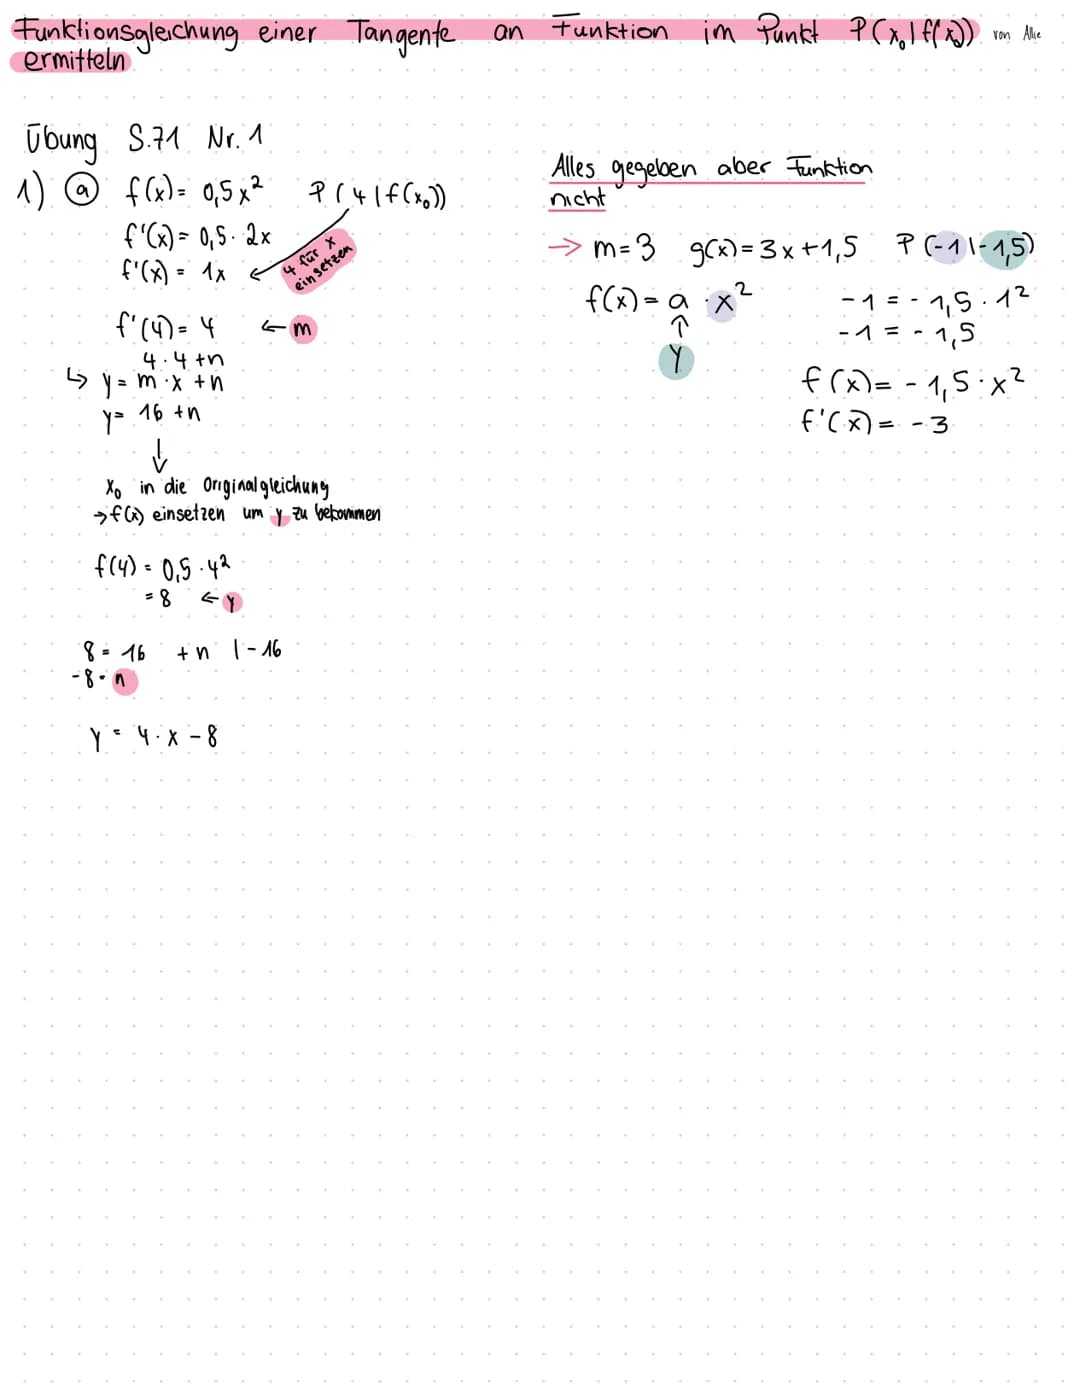 Funktionsgleichung einer Tangente an Funktion im Punkt P(x₀|f(x₀)) von Allie
ermitteln
Übung S.71 Nr. 1
1) a f(x) = 0,5x² P(4|f(x₀))
f'(x) = 0,5 · 2x
f'(x) = 1x ←
4 für x
einsetzen
f'(4) = 4 ← m
4 · 4 + n
↳ y = m · x + n
y = 16 + n
↓
x₀ in die Originalgleichung
→ f(x) einsetzen um y zu bekommen
f(4) = 0,5 · 4²
= 8 ← y
8 = 16 + n | - 16
-8 = n
y = 4 · x - 8
Alles gegeben aber Funktion
nicht
→ m = 3 g(x) = 3x + 1,5 P(-1|-1,5)
f(x) = a · x²
↑
y
-1 = -1,5 · 1²
-1 = -1,5
f(x) = -1,5 · x²
f'(x) = -3